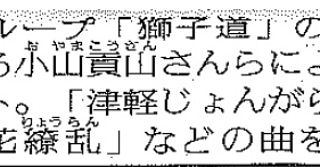 ループ「獅子道」の
小山貢山さんらによ
。「津軽じょんがら
花繚乱」などの曲を